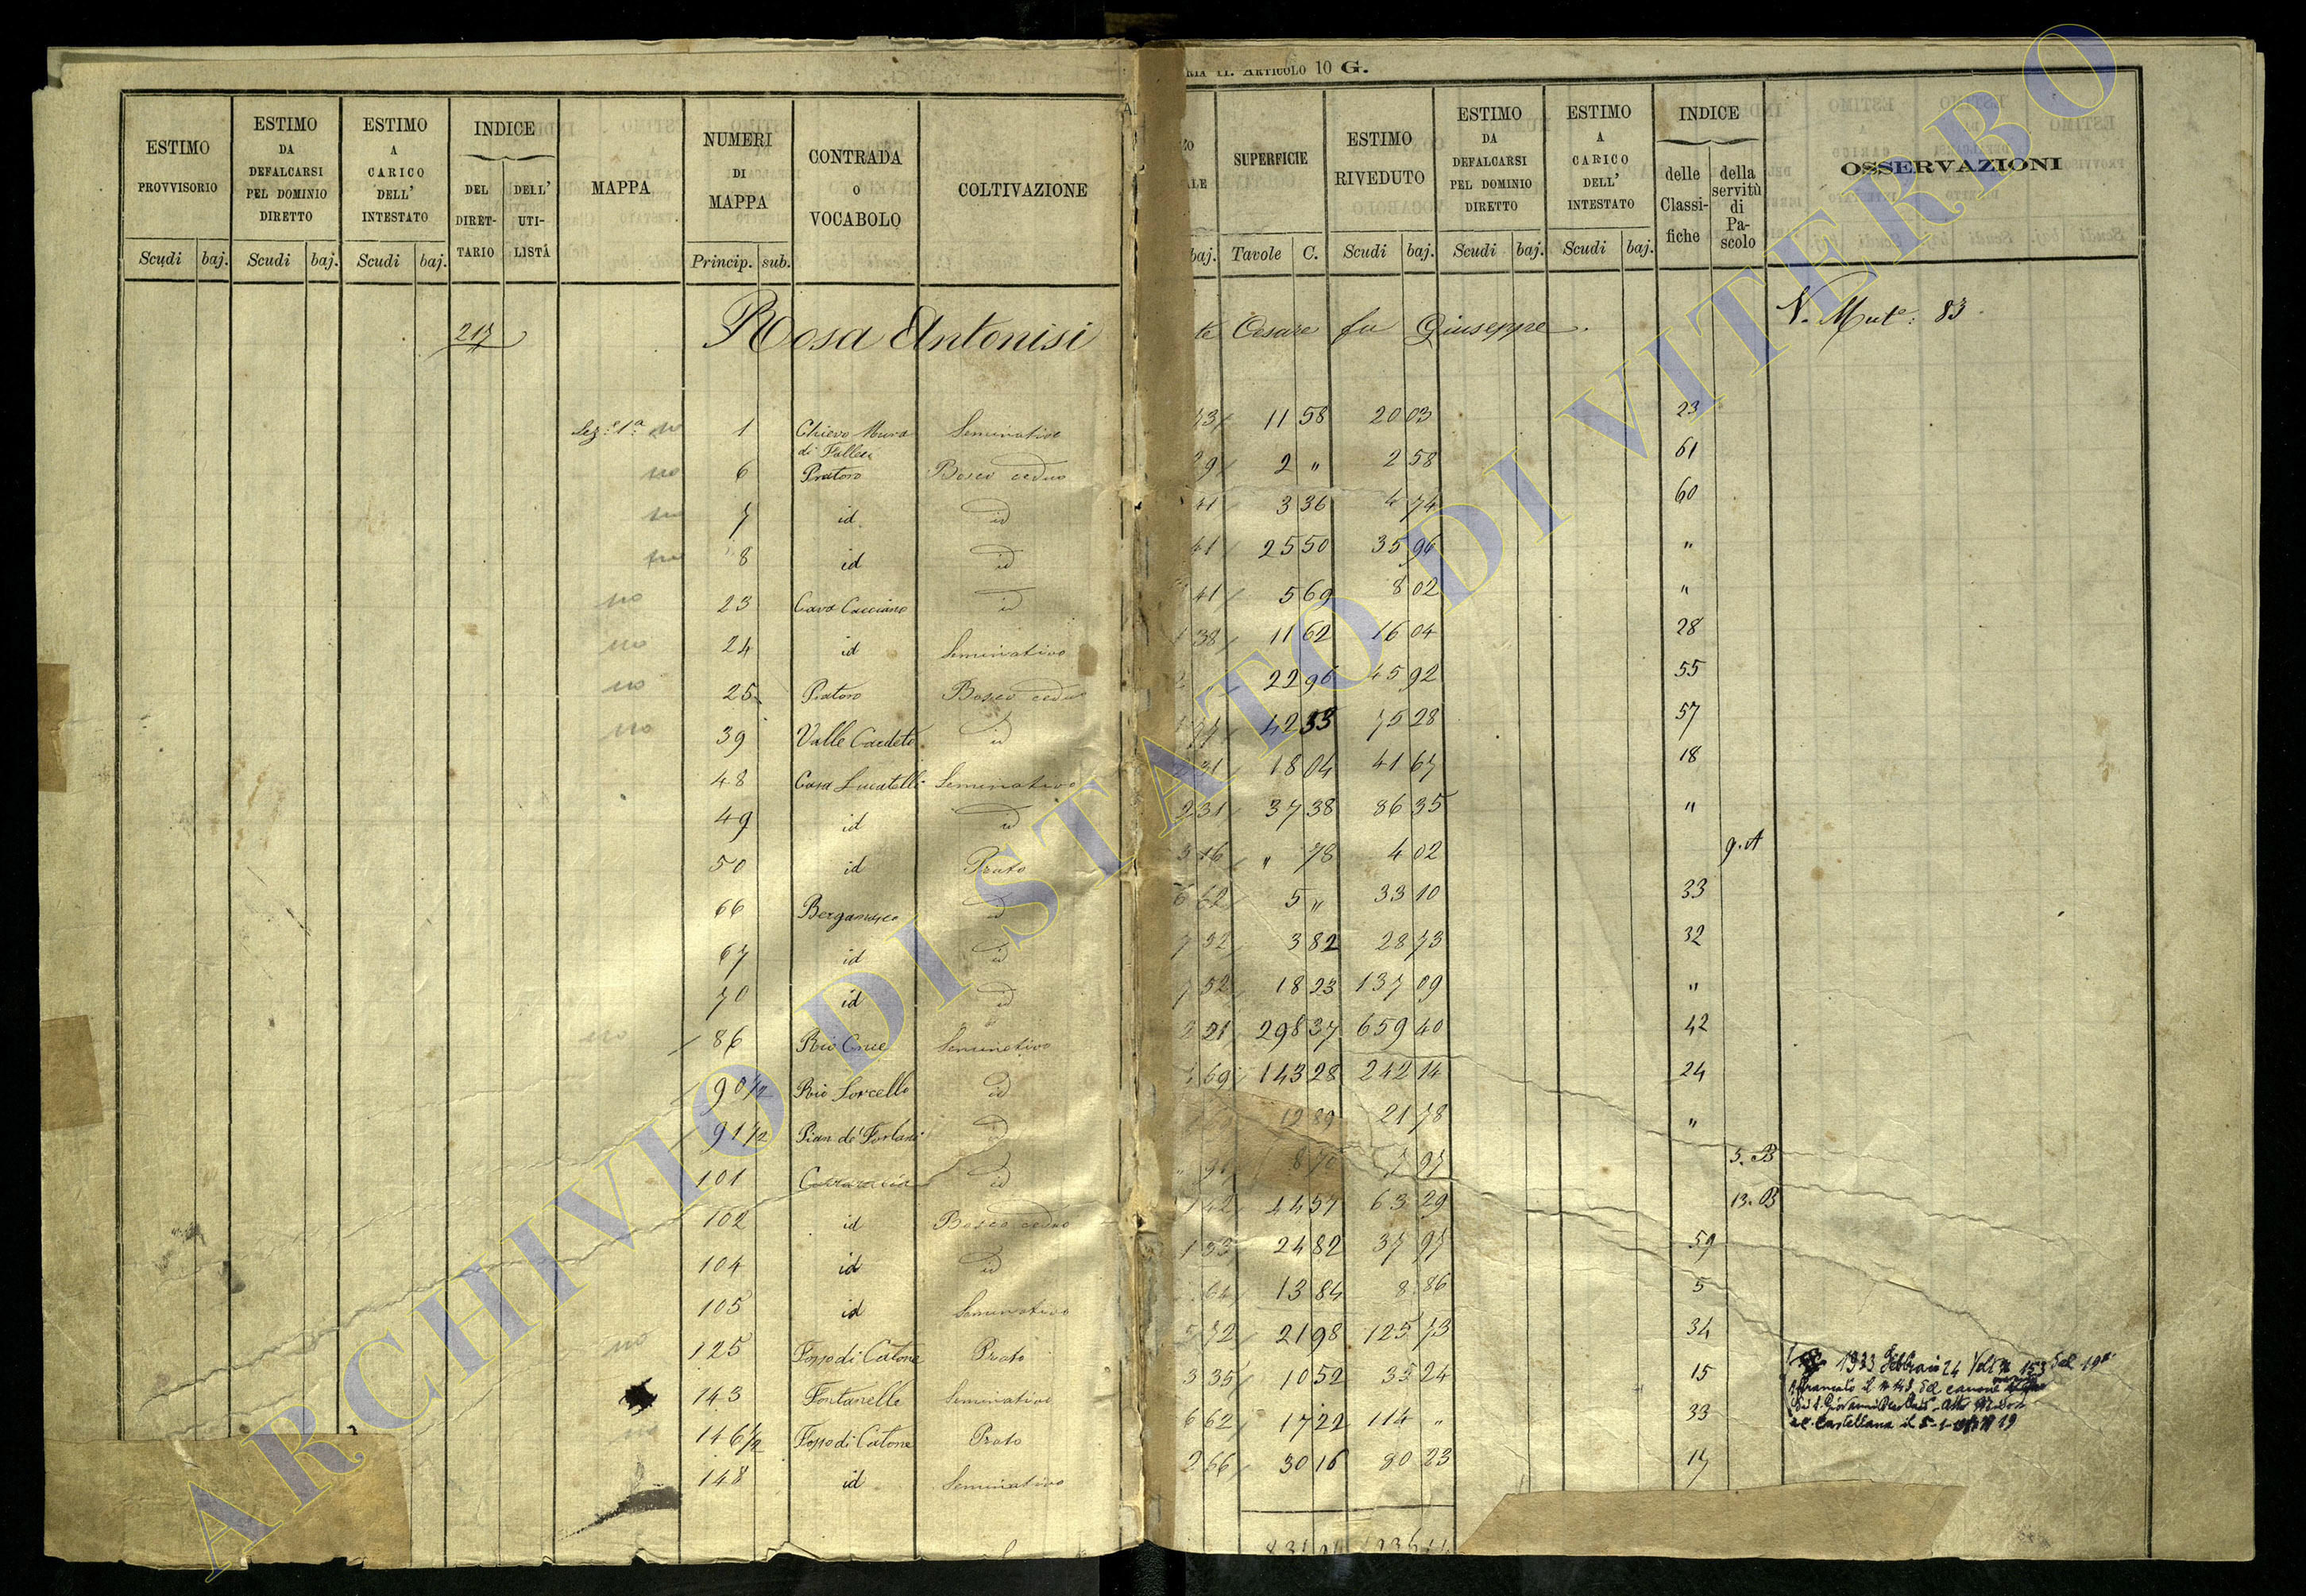 ARTICOLO 10 G.
ESTIMO PROVVISORIO Scudi baj.
ESTIMO DA DEFALCARSI PEL DOMINIO DIRETTO Scudi baj.
ESTIMO A CARICO DELL' INTESTATO Scudi baj.
INDICE DEL DIRET-TARIO DELL' UTI-LISTÁ
MAPPA
NUMERI DI MAPPA Princip. sub.
CONTRADA O VOCABOLO
COLTIVAZIONE
baj.
SUPERFICIE Tavole C.
ESTIMO RIVEDUTO Scudi baj.
ESTIMO DA DEFALCARSI PEL DOMINIO DIRETTO Scudi baj.
ESTIMO A CARICO DELL' INTESTATO Scudi baj.
INDICE delle Classi-fiche della servitù di Pa-scolo
OSSERVAZIONI
217 Rosa Antonisi te Cesare fu Giuseppe. N. Mut.e: 83
Sez:e 1a no 1 Seminativo 11 58 20 03 23
di Falleri
no 6 Pratoro Bosco ceduo 2 " 2 58 61
no 7 id id 41 3 36 4 74 60
no 8 id id 41 25 50 35 96 "
no 23 Cava Cacciano id 41 5 69 8 02 "
no 24 id Seminativo 38 11 62 16 04 28
no 25 Pratoro Bosco ceduo 22 96 45 92 55
no 39 Valle Cardeto id 77 42 53 75 28 57
48 Casa Lucatelli Seminativo 31 18 04 41 67 18
49 id id 2 31 37 38 86 35 "
50 id Prato 16 " 78 4 02 9. A
66 Bergamasco id 6 62 5 " 33 10 33
67 id id 7 52 3 82 28 73 32
70 id id 7 52 18 23 137 09 "
no 86 Rio Cruè Seminativo 2 21 298 37 659 40 42
90 1/2 Rio Lorcello id 69 143 28 242 14 24
91 1/2 Pian de' Forlani id 12 89 21 78 "
101 id 8 70 7 97 5. B
102 id Bosco ceduo 1 42 44 57 63 29 13. B
104 id id 1 53 24 82 37 97 59
105 id Seminativo 64 13 84 8 86 5
no 125 Fosso di Catone Prato 5 72 21 98 125 73 34
143 Fontanelle Seminativo 3 35 10 52 35 24 15
no 146 1/2 Fosso di Catone Prato 6 62 17 22 114 " 33
148 id Seminativo 2 66 30 16 80 23 17
1933 Febbraio 24 Volt. n 153 del 19
Affrancato il n 143 del canone
C. Castellana il 5-1- 19
ARCHIVIO DI STATO DI VITERBO